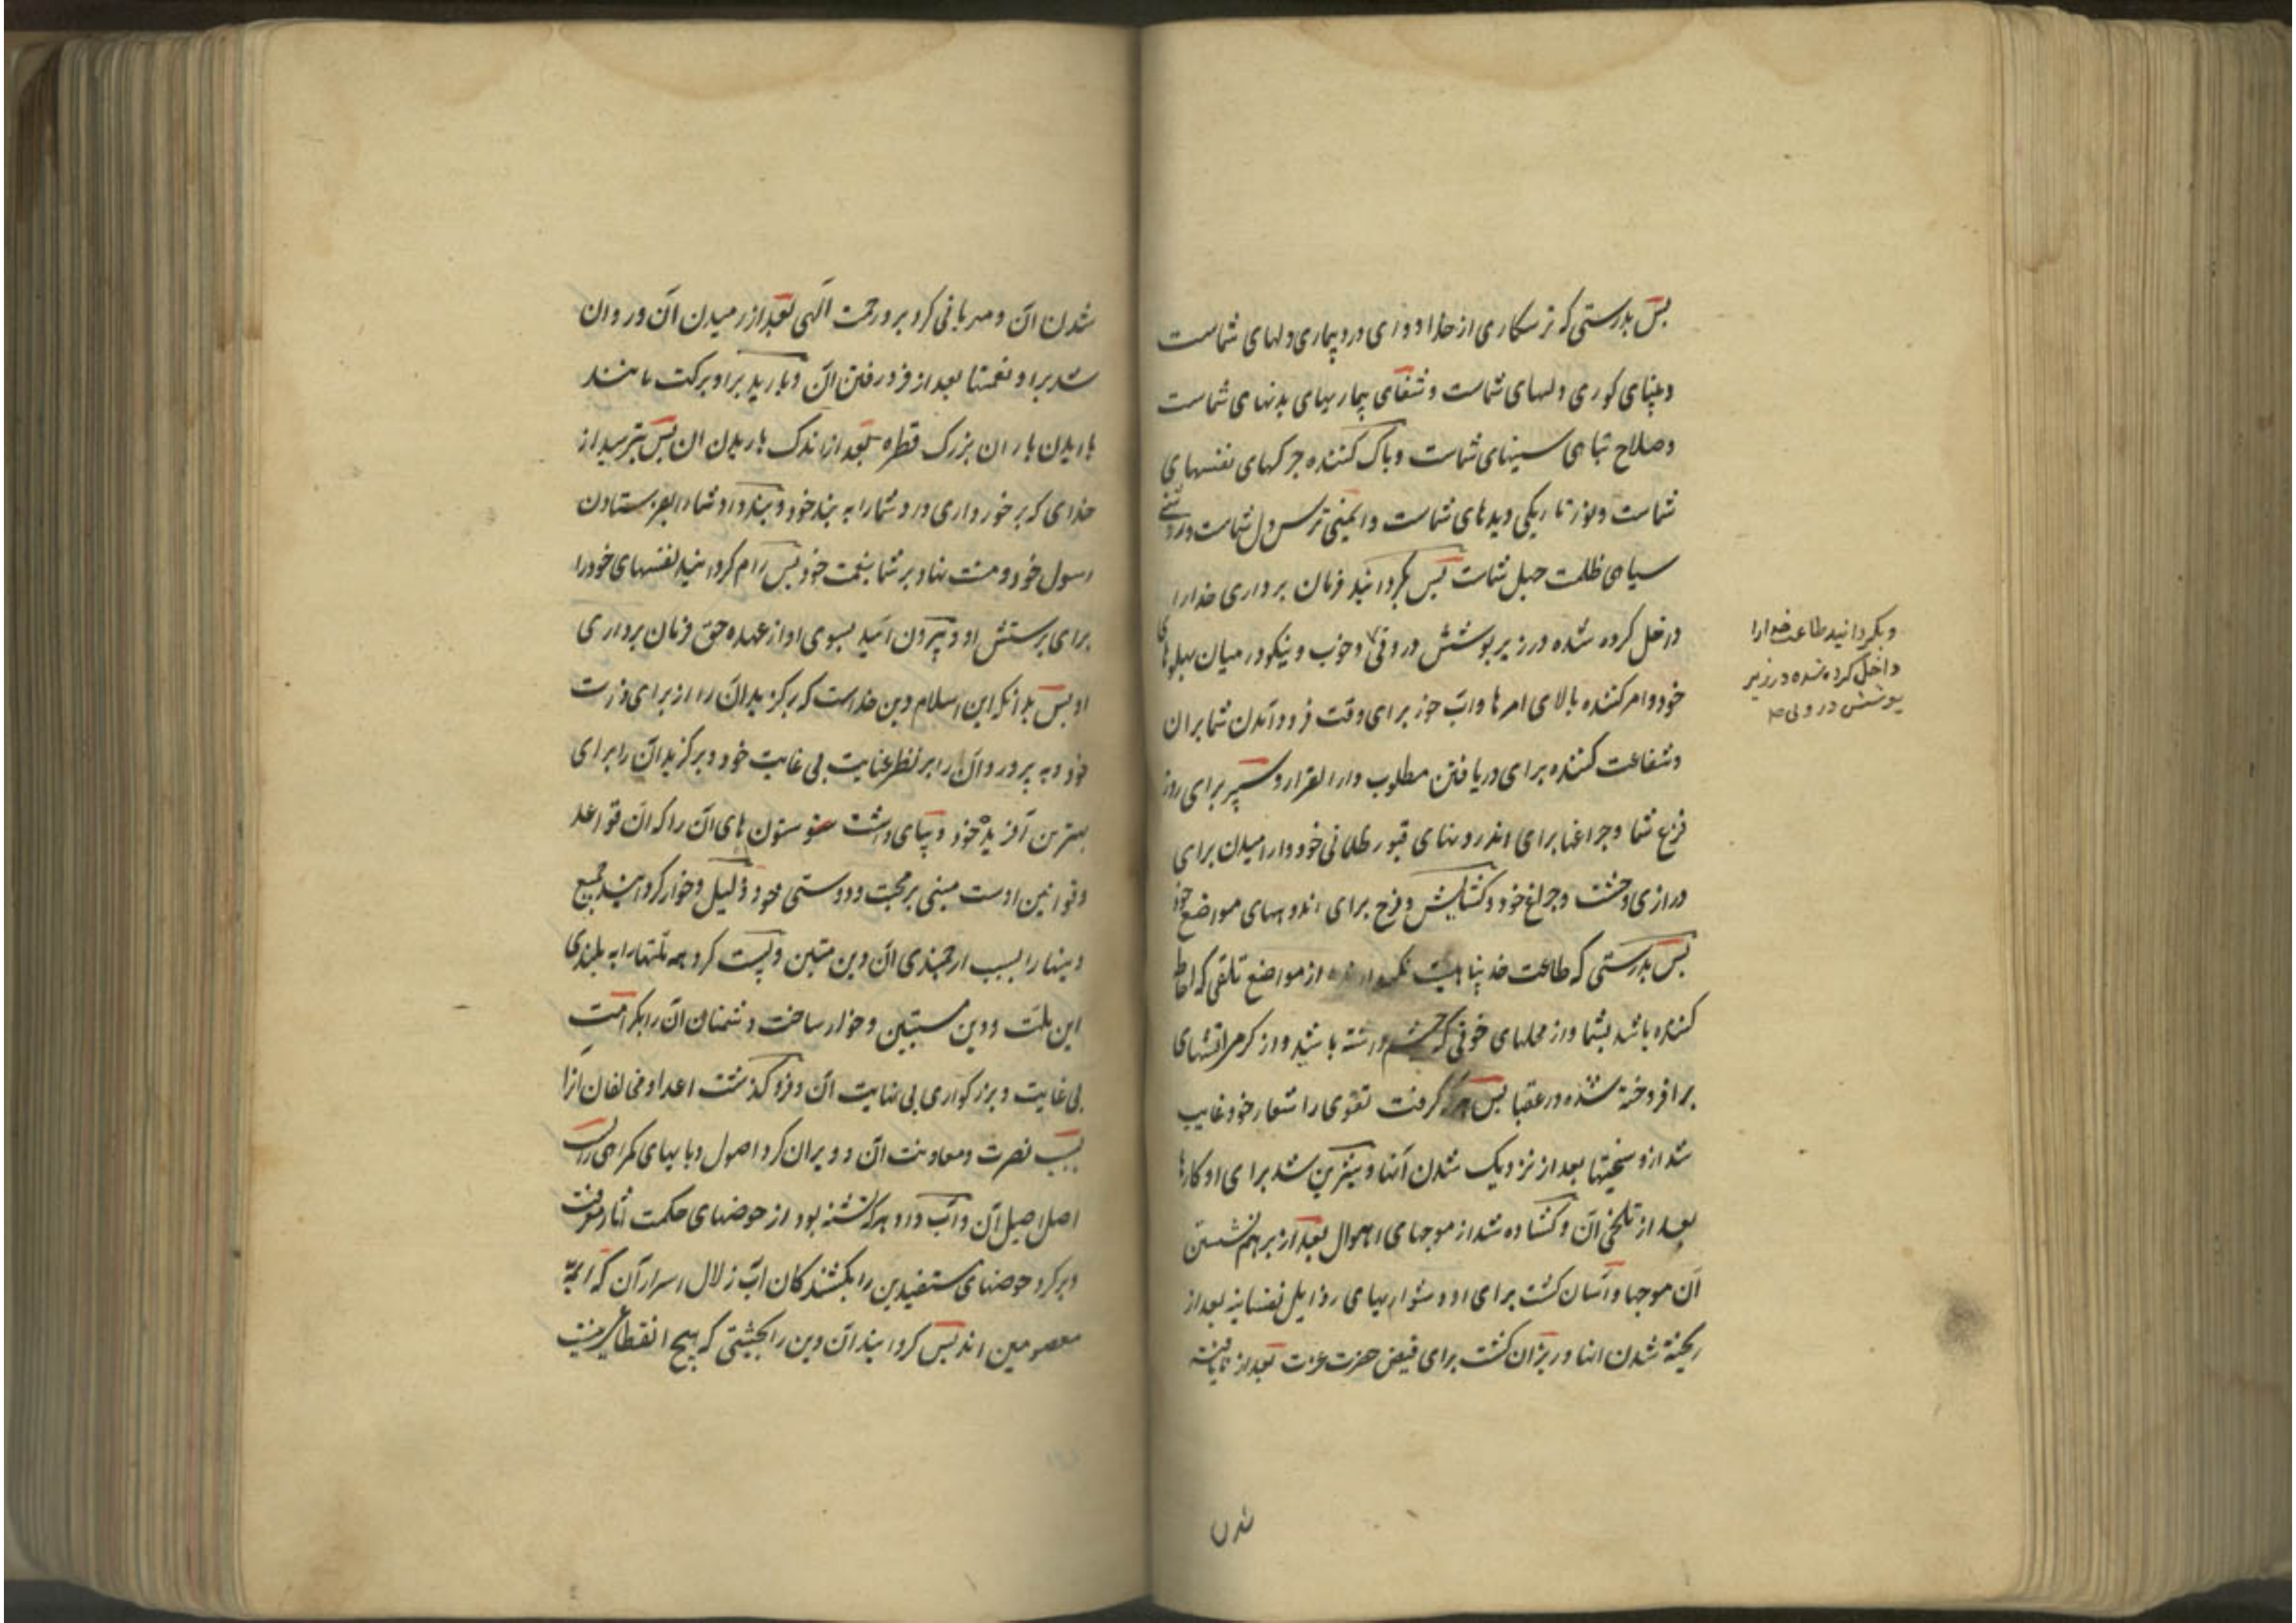 پس بدرستی که ترسکاری از خدا دوای درد بیماری دلهای شماست
و بینای کوری دلهای شماست و شفای بیماریهای بدنهای شماست
و صلاح تباهی سینهای شماست و پاک کننده چرکهای نفسهای
شماست و نور تاریکی دیدهای شماست و ایمنی ترس دل شماست و روشنی
سیاهی ظلمت جهل شماست پس بگردانید فرمان برداری خدا را
داخل کرده شده در زیر پوشش دروقی و خوب و نیکو در میان پهلوهای
خود و امر کننده بالای امرها و آب خور برای وقت فرود آمدن شما بران
و شفاعت کننده برای دریافتن مطلوب دار القرار و سپر برای روز
فزع شما و چراغها برای اندرونهای قبور ظلمانی خود و آرامیدن برای
درازی وحشت و چراغ خود و کشایش و فرح برای اندوههای مواضع خود
پس بدرستی که طاعت خدا پناهیست از مواضع تلفی که احاطه
کننده باشد بشما و از محلهای خوفی که چشم داشته باشید و از کرمی آتشهای
برافروخته شده در عقبا پس هر که گرفت تقوی را شعار خود غایب
شد ازو سختیها بعد از نزدیک شدن آنها و شیرین شد برای او کارها
بعد از تلخی آن و کشاده شد از موجهای اهوال بعد از برهم نشستن
آن موجها و آسان کشت برای او دشواریهای رذایل نفسانیه بعد از
ریخته شدن انها و ریزان کشت برای فیض حضرت عزت بعد از نایافته
شدن
و بگردانید طاعت خدا را
داخل کرده شده در زیر
پوشش درونی ص
شدن ان و مهربانی کرد برو رحمت الهی بعد از رمیدن آن و روان
شد برا و نعمتها بعد از فرو رفتن آن و بارید براو برکت مانند
باریدن باران بزرک قطره بعد از اندک باریدن ان پس بترسید از
خدای که برخورداری داد شما را به پند خود و پند داد شما را بفرستادن
رسول خود و منت نهاد بر شما بنعمت خود پس رام کردانید نفسهای خود را
برای پرستش او و بیرون آئید بسوی او از عهده حق فرمان برداری
او پس بدانکه این اسلام دین خداست که برکزید ان را از برای ذات
خود و به پرورد آن را بر نظر عنایت بی غایت خود و برکزید آن را برای
بهترین آفریده خود و بپای داشت ستون های آن را که ان قواعد
و قوانین اوست مبنی بر محبت و دوستی خود و ذلیل و خوار کردانید جمیع
دینها را بسبب ارجمندی ان دین متین و پست کرد همه ملتها را به بلندی
این ملت و دین مستبین و خوار ساخت دشمنان آن را بکرامت
بی غایت و بزرکواری بی نهایت آن و فرو کذاشت اعدا و مخالفان انرا
بسبب نصرت و معاونت ان و ویران کرد اصول و بابهای کمراهی را بسبب
اصل اصیل آن و آب داد هر که تشنه بود از حوضهای حکمت آثار معرفت
و پر کرد حوضهای مستفیدین را بکشندکان آب زلال اسرار آن که ایمه
معصومین اند پس کردانید آن دین را بحیثیتی که هیچ انقطاعی نیست